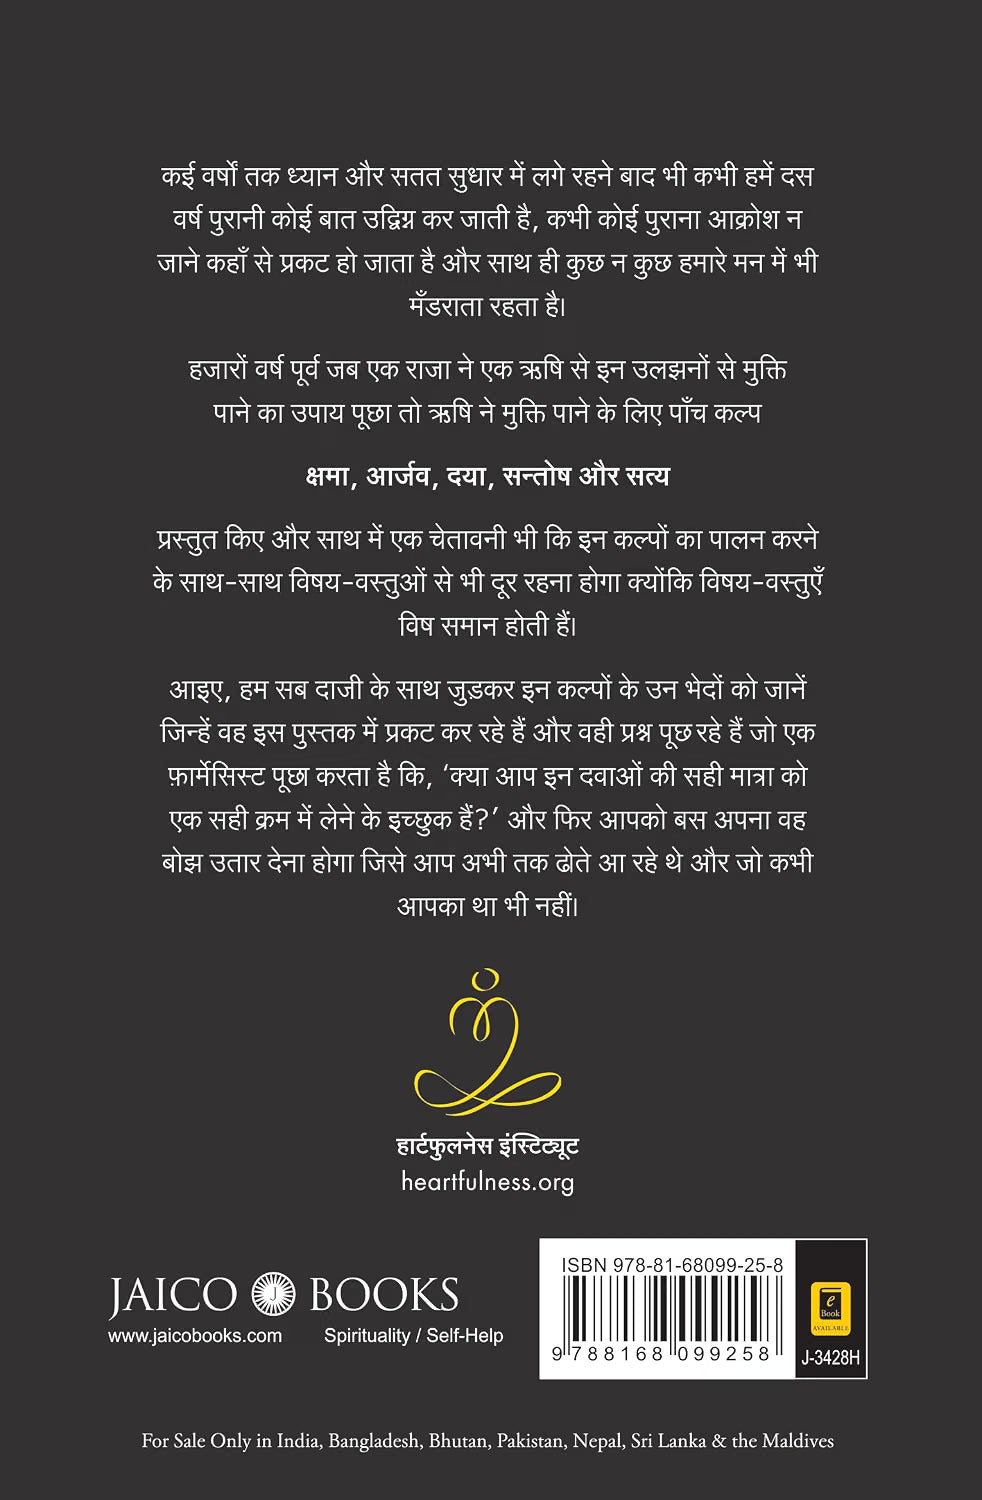 कई वर्षों तक ध्यान और सतत सुधार में लगे रहने बाद भी कभी हमें दस
वर्ष पुरानी कोई बात उद्विग्न कर जाती है, कभी कोई पुराना आक्रोश न
जाने कहाँ से प्रकट हो जाता है और साथ ही कुछ न कुछ हमारे मन में भी
मँडराता रहता है।
हजारों वर्ष पूर्व जब एक राजा ने एक ऋषि से इन उलझनों से मुक्ति
पाने का उपाय पूछा तो ऋषि ने मुक्ति पाने के लिए पाँच कल्प
क्षमा, आर्जव, दया, सन्तोष और सत्य
प्रस्तुत किए और साथ में एक चेतावनी भी कि इन कल्पों का पालन करने
के साथ-साथ विषय-वस्तुओं से भी दूर रहना होगा क्योंकि विषय-वस्तुएँ
विष समान होती हैं।
आइए, हम सब दाजी के साथ जुड़कर इन कल्पों के उन भेदों को जानें
जिन्हें वह इस पुस्तक में प्रकट कर रहे हैं और वही प्रश्न पूछ रहे हैं जो एक
फ़ार्मेसिस्ट पूछा करता है कि, ‘क्या आप इन दवाओं की सही मात्रा को
एक सही क्रम में लेने के इच्छुक हैं?’ और फिर आपको बस अपना वह
बोझ उतार देना होगा जिसे आप अभी तक ढोते आ रहे थे और जो कभी
आपका था भी नहीं।
हार्टफुलनेस इंस्टिट्यूट
heartfulness.org
JAICO J BOOKS
www.jaicobooks.com Spirituality / Self-Help
ISBN 978-81-68099-25-8
9 788168 099258
e
Book
AVAILABLE
J-3428H
For Sale Only in India, Bangladesh, Bhutan, Pakistan, Nepal, Sri Lanka & the Maldives